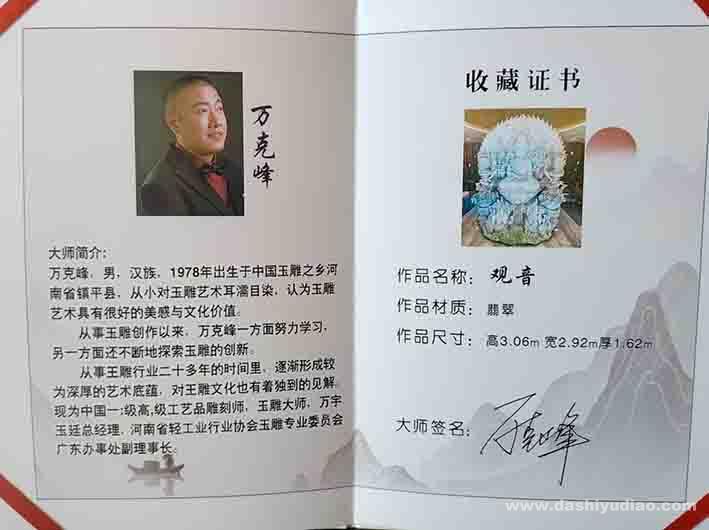 万克峰
大师简介:
万克峰，男，汉族，1978年出生于中国玉雕之乡河
南省镇平县，从小对玉雕艺术耳濡目染，认为玉雕
艺术具有很好的美感与文化价值。
从事玉雕创作以来，万克峰一方面努力学习，
另一方面还不断地探索玉雕的创新。
从事王雕行业二十多年的时间里，逐渐形成较
为深厚的艺术底蕴，对王雕文化也有着独到的见解。
现为中国一:级高,级工艺品雕刻师，玉雕大师，万宇
玉廷总经理，河南省轻工业行业协会玉雕专业委员会
广东办事处副理事长。
收藏证书
作品名称: 观音
作品材质: 翡翠
作品尺寸: 高3.06m 宽2.92m厚1.62m
大师签名: 万克峰
www.dashiyudiao.com